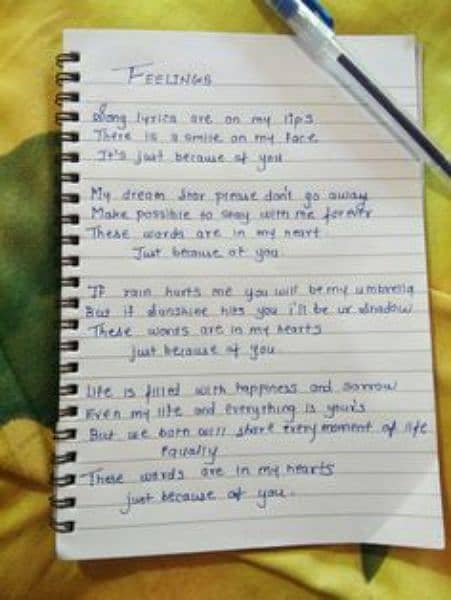 FEELINGS
Song lyrics are on my lips
There is a smile on my face
It's just because of you
My dream star please don't go away
Make possible to stay with me forever
These words are in my heart
Just because of you.
If rain hurts me you will be my umbrella
But if sunshine hits you i'll be ur shadow
These words are in my hearts
just because of you.
Life is filled with happiness and sorrow
Even my life and everything is your's
But we both will share every moment of life
equally
These words are in my hearts
just because of you.